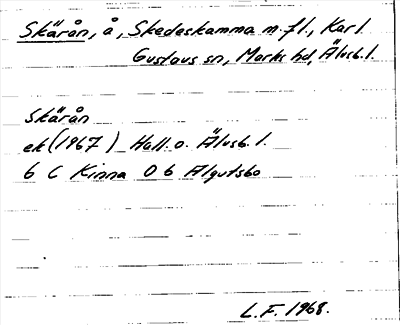 Skärån, å, Skedeskamma m.fl., Karl
Gustavs sn, Marks hd, Älvsb. l.
Skärån
ek (1967) Hall. o. Älvsb. l.
6 C Kinna 0 b Algutsbo
L.F. 1968.